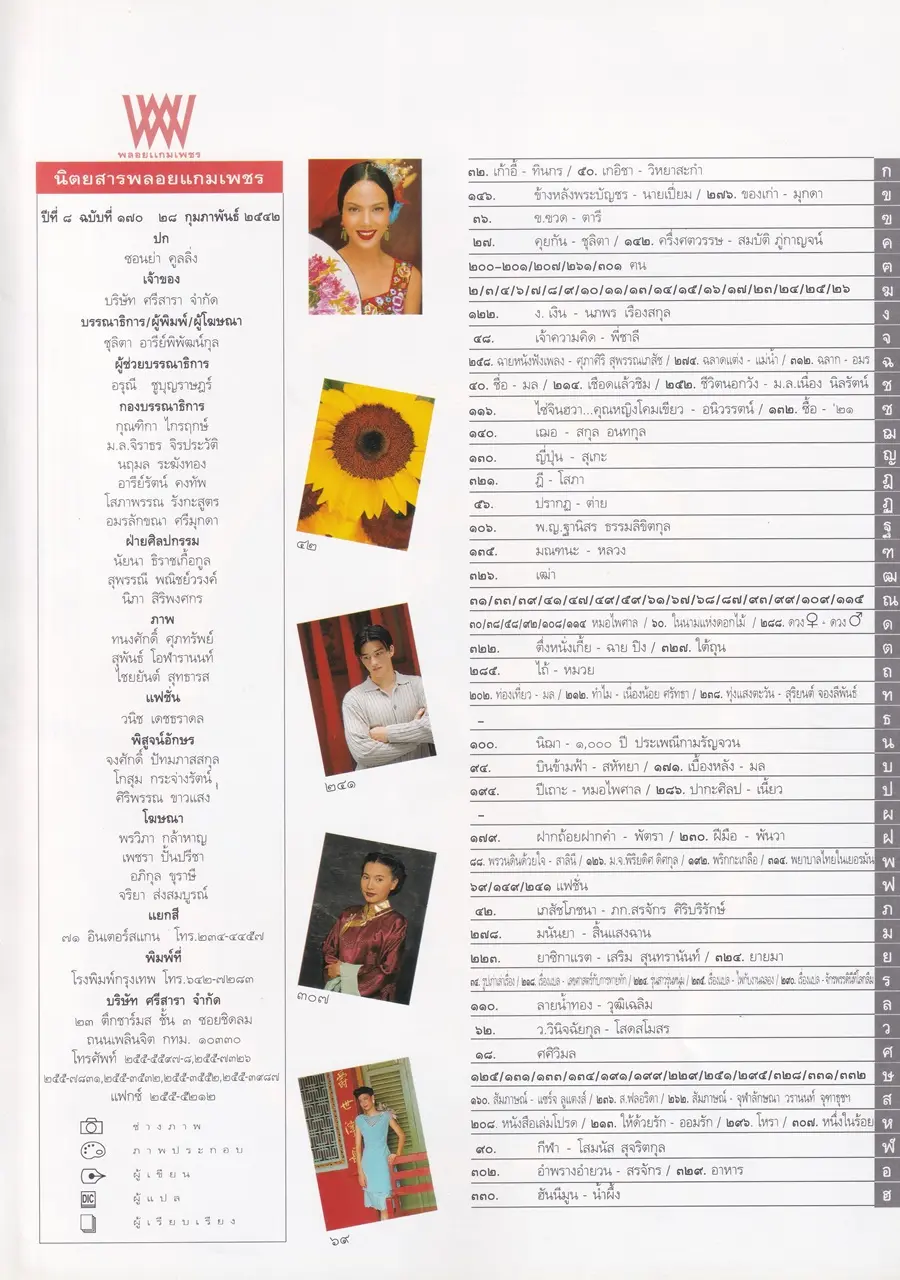 พลอยแกมเพชร
นิตยสารพลอยแกมเพชร
ปีที่ ๘ ฉบับที่ ๑๗๐ ๒๘ กุมภาพันธ์ ๒๕๔๒
ปก
ซอนย่า คูลลิ่ง
เจ้าของ
บริษัท ศรีสารา จำกัด
บรรณาธิการ/ผู้พิมพ์/ผู้โฆษณา
ชุลิตา อารีย์พิพัฒน์กุล
ผู้ช่วยบรรณาธิการ
อรุณี ชูบุญราษฎร์
กองบรรณาธิการ
กุณฑิกา ไกรฤกษ์
ม.ล.จิราธร จิรประวัติ
นฤมล ระฆังทอง
อารีย์รัตน์ คงทัพ
โสภาพรรณ รังกะสูตร
อมรลักขณา ศรีมุกดา
ฝ่ายศิลปกรรม
นัยนา ธิราชเกื้อกูล
สุพรรณี พณิชย์วรงค์
นิภา สิริพงศกร
ภาพ
ทนงศักดิ์ ศุภทรัพย์
สุพันธ์ โอฬารานนท์
ไชยยันต์ สุทธารส
แฟชั่น
วนิช เดชธราดล
พิสูจน์อักษร
จงศักดิ์ ปัทมภาสสกุล
โกสุม กระจ่างรัตน์
ศิริพรรณ ขาวแสง
โฆษณา
พรวิภา กล้าหาญ
เพชรา ปั้นปรีชา
อภิกุล ขุราษี
จริยา ส่งสมบูรณ์
แยกสี
๗๑ อินเตอร์สแกน โทร.๒๓๔-๔๔๕๗
พิมพ์ที่
โรงพิมพ์กรุงเทพ โทร.๖๔๒-๗๒๘๓
บริษัท ศรีสารา จำกัด
๒๓ ตึกชาร์มส ชั้น ๓ ซอยชิดลม
ถนนเพลินจิต กทม. ๑๐๓๓๐
โทรศัพท์ ๒๕๕-๕๕๙๗-๘,๒๕๕-๗๓๒๖
๒๕๕-๗๘๓๑,๒๕๕-๓๕๓๒,๒๕๕-๓๕๕๒,๒๕๕-๓๙๘๗
แฟกซ์ ๒๕๕-๕๒๑๒
ช่างภาพ
ภาพประกอบ
ผู้เขียน
DIC ผู้แปล
ผู้เรียบเรียง
๔๒
๒๔๑
๓๐๗
๖๙
๓๒. เก้าอี้ - ทินกร / ๕๐. เกอิชา - วิทยาสะกำ ก
๑๔๖. ข้างหลังพระบัญชร - นายเปี่ยม / ๒๗๖. ของเก่า - มุกดา ข
๓๖. ฃ.ขวด - ตารี ฃ
๒๗. คุยกัน - ชุลิตา / ๑๔๒. ครึ่งศตวรรษ - สมบัติ ภู่กาญจน์ ค
๒๐๐-๒๐๑/๒๐๗/๒๖๑/๓๐๑ ฅน ฅ
๒/๓/๔/๖/๗/๘/๙/๑๐/๑๑/๑๓/๑๔/๑๕/๑๖/๑๗/๒๓/๒๔/๒๕/๒๖ ฆ
๑๒๒. ง. เงิน - นภพร เรืองสกุล ง
๔๘. เจ้าความคิด - พี่ชาลี จ
๒๕๘. ฉายหนังฟังเพลง - ศุภาศิริ สุพรรณเภสัช / ๒๗๔. ฉลาดแต่ง - แม่น้ำ / ๓๑๒. ฉลาก - อมร ฉ
๔๐. ชื่อ - มล / ๒๑๔. เชือดแล้วชิม / ๒๕๒. ชีวิตนอกวัง - ม.ล.เนื่อง นิลรัตน์ ช
๑๑๖. ไซ่จินฮวา...คุณหญิงโคมเขียว - อนิวรรตน์ / ๑๓๒. ซื้อ - '๒๑ ซ
๑๔๐. เฌอ - สกุล อนทกุล ฌ
๑๓๐. ญี่ปุ่น - สุเกะ ญ
๓๒๑. ฎี - โสภา ฎ
๕๖. ปรากฏ - ต่าย ฏ
๑๐๖. พ.ญ.ฐานิสร ธรรมลิขิตกุล ฐ
๑๓๔. มณฑนะ - หลวง ฑ
๓๒๖. เฒ่า ฒ
๓๑/๓๓/๓๙/๔๑/๔๗/๔๙/๕๙/๖๑/๖๗/๖๘/๘๗/๙๓/๙๙/๑๐๙/๑๑๕ ณ
๓๐/๓๘/๕๘/๙๒/๑๐๘/๑๑๔ หมอไพศาล / ๖๐. ในนามแห่งดอกไม้ / ๒๘๘. ดวง♀ - ดวง♂ ด
๓๒๒. ตึ่งหนั่งเกี้ย - ฉาย ปิง / ๓๒๗. ใต้ถุน ต
๒๘๕. ไถ้ - หมวย ถ
๒๐๒. ท่องเที่ยว - มล / ๒๑๒. ทำไม - เนื่องน้อย ศรัทธา / ๒๓๘. ทุ่งแสงตะวัน - สุริยนต์ จองลีพันธ์ ท
- ธ
๑๐๐. นิฌา - ๑,๐๐๐ ปี ประเพณีกามรัญจวน น
๙๔. บินข้ามฟ้า - สหัทยา / ๑๗๑. เบื้องหลัง - มล บ
๑๙๔. ปีเถาะ - หมอไพศาล / ๒๘๖. ปากะศิลป - เนี้ยว ป
- ผ
๑๗๙. ฝากถ้อยฝากคำ - พัตรา / ๒๓๐. ฝีมือ - พันวา ฝ
๘๘. พรวนดินด้วยใจ - สาลินี / ๑๒๖. ม.จ.พิริยดิศ ดิศกุล / ๑๙๒. พริกกะเกลือ / ๓๑๔. พยาบาลไทยในเยอรมัน พ
๖๙/๑๔๙/๒๔๑ แฟชั่น ฟ
๔๒. เภสัชโภชนา - ภก.สรจักร ศิริบริรักษ์ ภ
๒๗๘. มนันยา - สิ้นแสงฉาน ม
๒๒๓. ยาซิกาแรต - เสริม สุนทรานันท์ / ๓๒๔. ยายมา ย
ร
๑๑๐. ลายน้ำทอง - วุฒิเฉลิม ล
๖๒. ว.วินิจฉัยกุล - โสดสโมสร ว
๑๘. ศศิวิมล ศ
๑๒๕/๑๓๑/๑๓๓/๑๓๔/๑๙๑/๑๙๙/๒๒๙/๒๕๑/๒๙๔/๓๒๘/๓๓๑/๓๓๒ ษ
๑๖๐. สัมภาษณ์ - แซร์จ ลูแตงส์ / ๒๓๖. ส.ฟลอริดา / ๒๖๒. สัมภาษณ์ - จุฬาลักษณา วรานนท์ จุฑาธุชฯ ส
๒๐๘. หนังสือเล่มโปรด / ๒๑๓. ให้ด้วยรัก - ออมรัก / ๒๙๖. โหรา / ๓๐๗. หนึ่งในร้อย ห
๙๐. กีฬา - โสมนัส สุจริตกุล ฬ
๓๐๒. อำพรางอำยวน - สรจักร / ๓๒๙. อาหาร อ
๓๓๐. ฮันนีมูน - น้ำผึ้ง ฮ